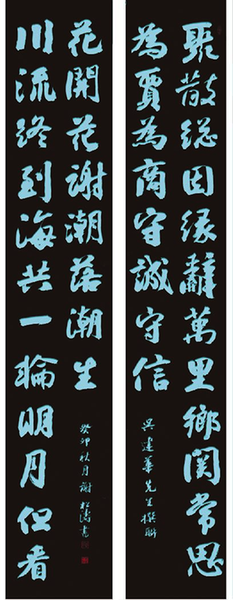 聚散総因缘辭萬里鄉関常思
為賈為商守誠守信
吳建華先生撰聯
川流終到海共一輪明月但看
花開花謝潮落潮生
癸卯秋月謝松濤書